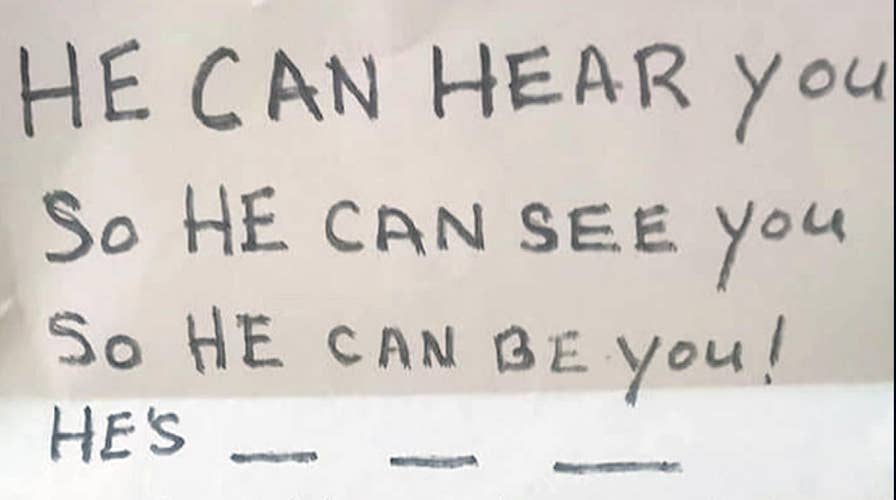 HE CAN HEAR you
So HE CAN SEE you
So HE CAN BE you!
HE'S _ _ _